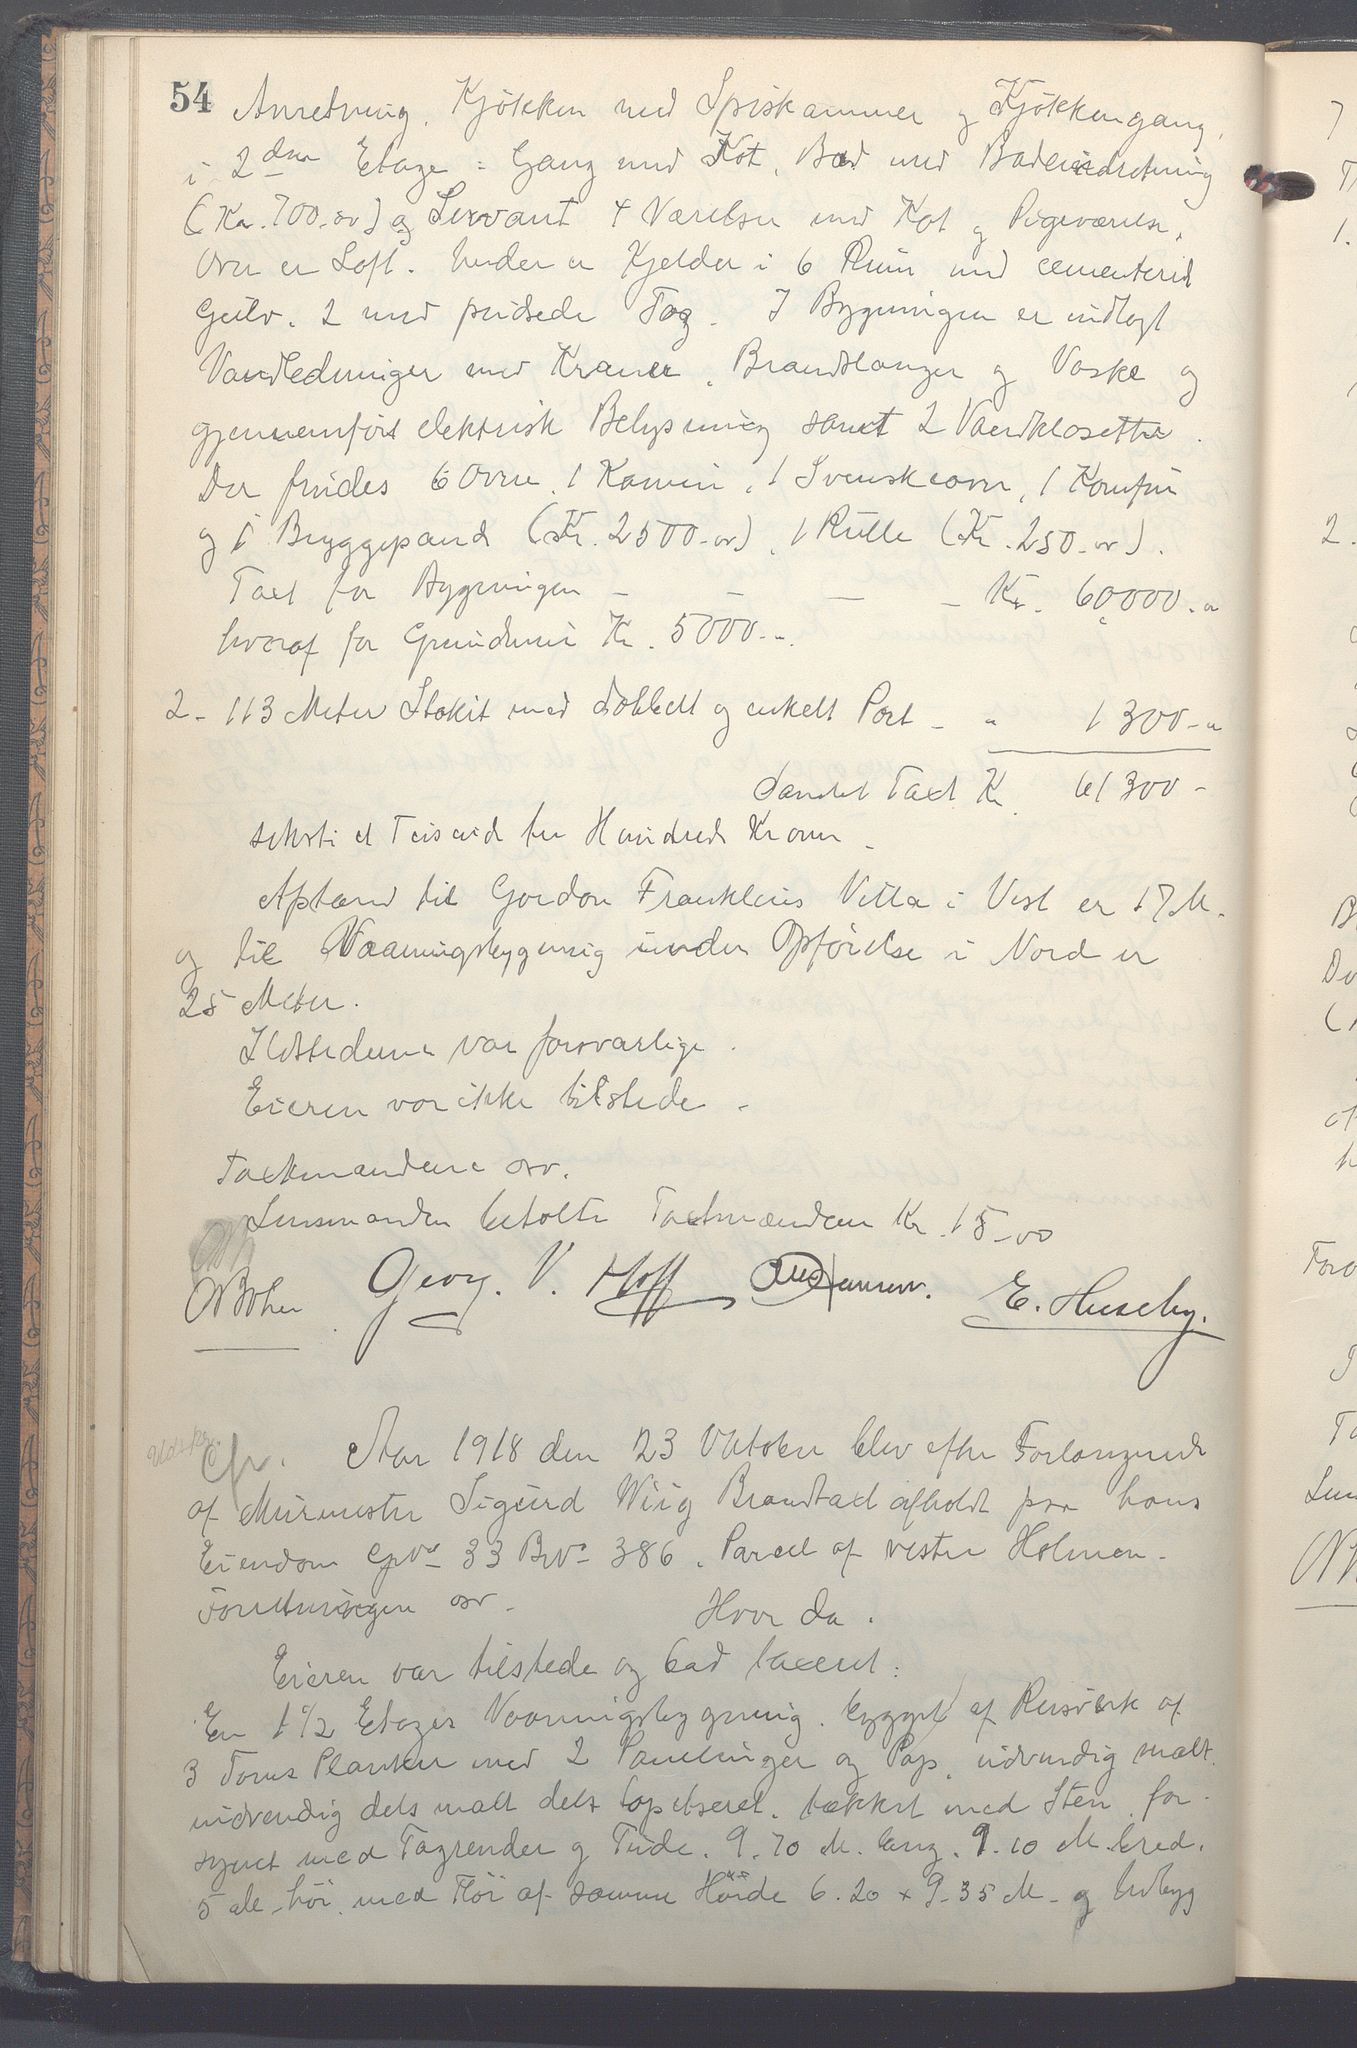 54
Anretning. Kjökken med Spiskammer og Kjökkengang.
i 2den Etage: Gang med Kot, Bad med Badeindretning
(Kr. 700-oo) og Servant 4 Værelser med Kot og Pigeværelse.
Over er Loft. Under er Kjelder i 6 Rum med cementered
Gulv. 2 med pudsede Tag. I Bygningen er indlagt
Vandledninger med Kraner, Brandslanger og Vaske og
gjennemført elektrisk Belysning samt 2 Vandklosetter.
Der findes 6 Ovne, 1 Kamin, 1 Svenskeovn, 1 Komfur
og 1 Bryggepand (Kr. 2500-oo), 1 Rulle (Kr. 250-oo).
Taxt for Bygningen - - - - Kr. 60,000.-
hvoraf for Grundmur Kr. 5000--.
2- 113 Meter Stakit med dobbelt og enkelt Port - " 1300-"
Samlet Taxt Kr. 61300-
seksti et Tusend tre Hundrede Kroner -
Afstand til Gordon Franklins Villa i Vest er 17 M.
og til Vaaningsbygning under Opförelse i Nord er
25 Meter.
Ildstederne var forsvarlige.
Eieren var ikke tilstede -
Taxtmændene osv.
Lensmanden betalte Taxtmændene Kr. 15-00
Georg. V. Hoff E. Huseby.
Udskr.
Aar 1918 den 23 Oktober blev efter Forlangende
af Murmester Sigurd Wiig Brandtaxt afholdt paa hans
Eiendom GNo 33 BNo 386, Parcel af vestre Holmen.
Forretningen osv. Hvor da.
Eieren var tilstede og bad taxeret:
En 1 1/2 Etages Vaaningsbygning, bygget af Reisverk af
3 Toms Planker med 2 Panelinger og Pap, udvendig malt
indvendig dels malt dels tapetseret, tækket med Sten, for-
synet med Tagrender og Nedløb. 9.70 M. lang. 9.10 M. bred.
5 M. höi, med Flöi af samme Höide 6.20 x 9.35 M. og Udbyg